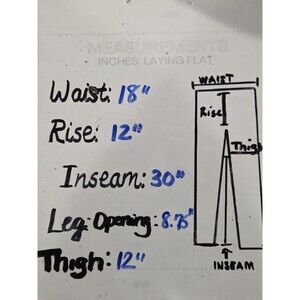 MEASUREMENTS
INCHES, LAYING FLAT
Waist: 18"
Rise: 12"
Inseam: 30"
Leg Opening: 8.75"
Thigh: 12"
WAIST
Rise
Thigh
INSEAM